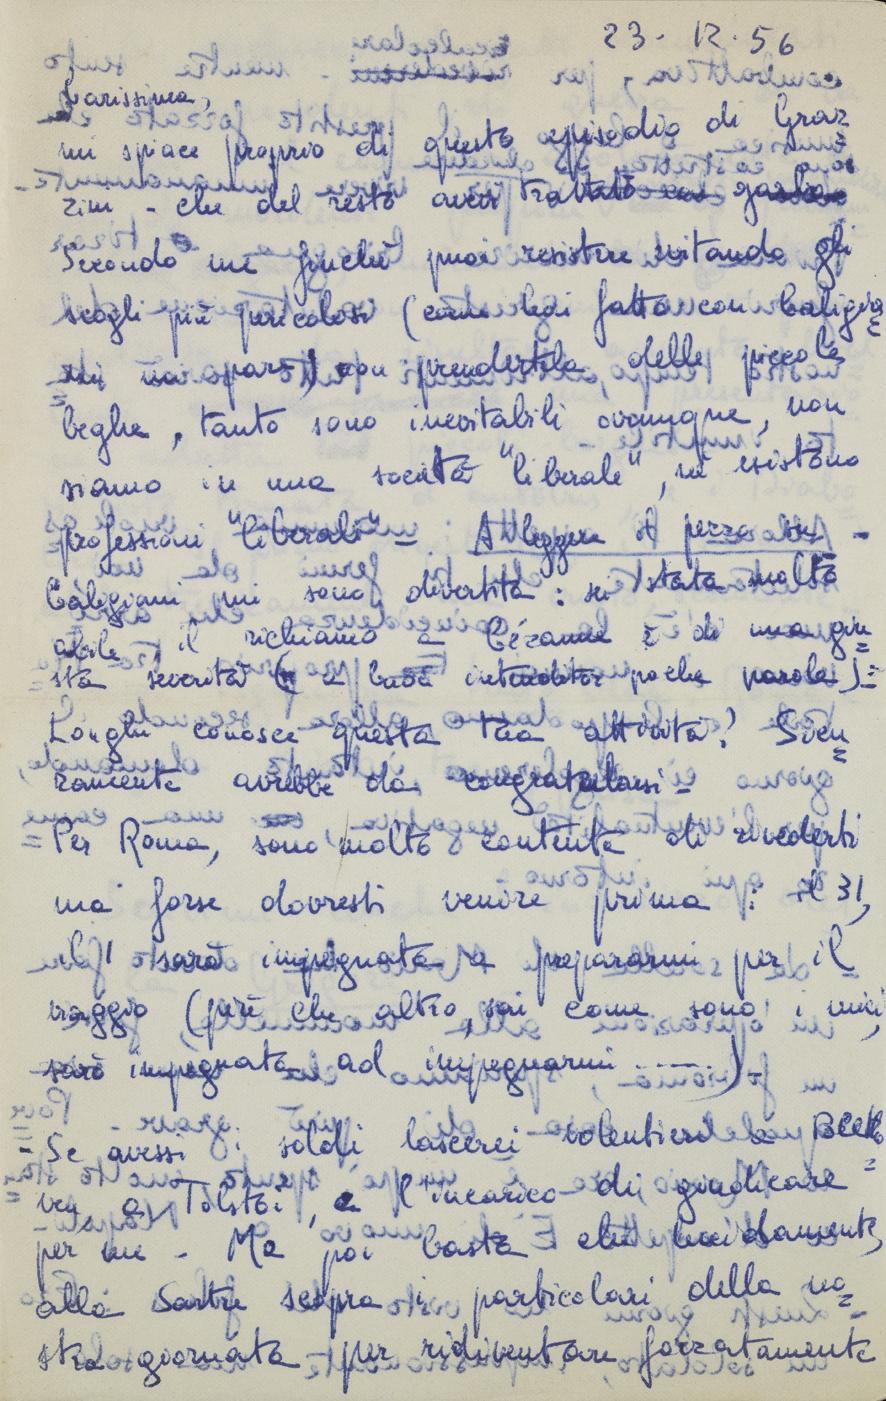 23. 12. 56
Carissima,
mi spiace proprio di questo episodio di Graz=
zini - che del resto avevi trattato con garbo.
Secondo me finché puoi resistere evitando gli
scogli più pericolosi (come hai fatto con Caligia=
ni mi pare) e non prendertela delle piccole
beghe, tanto sono inevitabili ovunque, non
siamo in una società "liberale", né esistono
professioni "liberali" - A leggere il pezzo su
Caligiani mi sono divertita: sei stata molto
abile il richiamo a Cézanne è di una giu=
sta severità (e a buon intenditor poche parole) -
Longhi conosce questa tua attività? Sicu=
ramente avrebbe da congratularsi -
Per Roma, sono molto contenta di rivederti
ma forse dovresti venire prima: il 31,
l'1 sarò impegnata a prepararmi per il
viaggio (più che altro, sai come sono i miei,
sarò impegnata ad impegnarmi .....) -
- Se avessi i soldi lascerei volentieri a Beetho=
ven, a Tolstoi, e l'incarico di giudicare
per me - Ma poi basta che lucidamente,
alla Sartre scopra i particolari della no=
stra giornata per ridiventare forzatamente